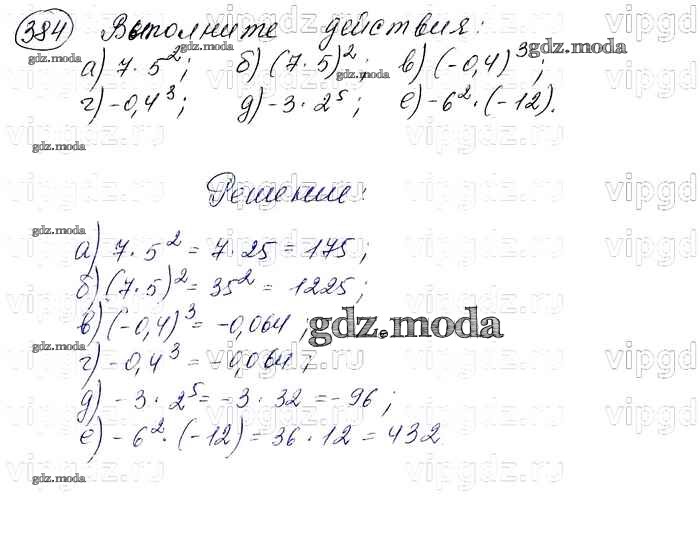 384 Выполните действия:
а) 7 · 5²; б) (7 · 5)²; в) (-0,4)³;
г) -0,4³; д) -3 · 2⁵; е) -6² · (-12).
Решение:
а) 7 · 5² = 7 · 25 = 175;
б) (7 · 5)² = 35² = 1225;
в) (-0,4)³ = -0,064;
г) -0,4³ = -0,064;
д) -3 · 2⁵ = -3 · 32 = -96;
е) -6² · (-12) = 36 · 12 = 432
gdz.moda
gdz.moda
gdz.moda
gdz.moda
gdz.moda
gdz.moda
gdz.moda
gdz.moda
gdz.moda
gdz.moda
vipgdz.ru